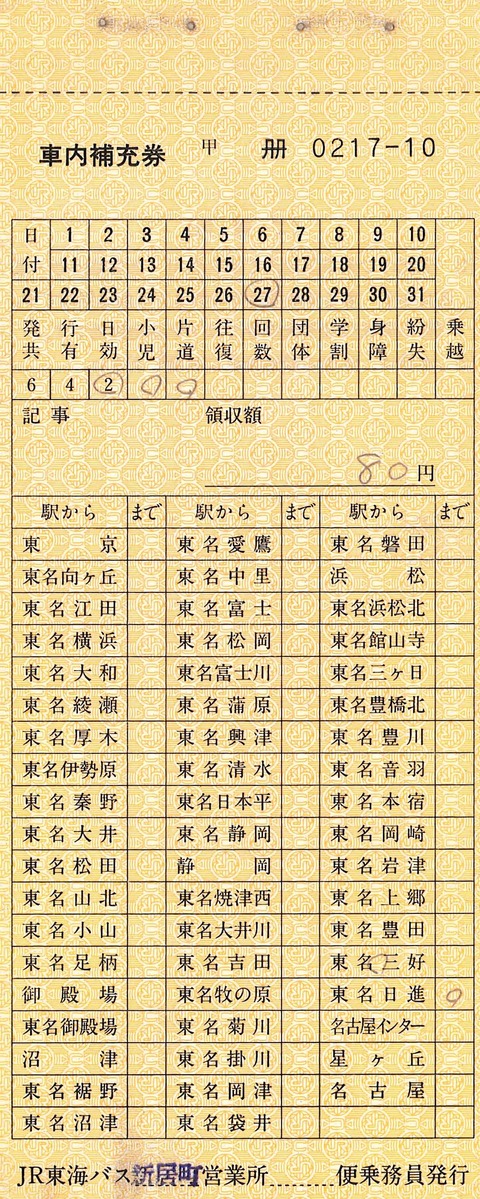 車内補充券 甲 册 0217-10
日 1 2 3 4 5 6 7 8 9 10
付 11 12 13 14 15 16 17 18 19 20
21 22 23 24 25 26 27 28 29 30 31
発 行 日 小 片 往 回 団 学 身 紛 乗
共 有 効 児 道 復 数 体 割 障 失 越
6 4 2
記事 領収額
80円
駅から まで 駅から まで 駅から まで
東京 東名愛鷹 東名磐田
東名向ヶ丘 東名中里 浜松
東名江田 東名富士 東名浜松北
東名横浜 東名松岡 東名館山寺
東名大和 東名富士川 東名三ヶ日
東名綾瀬 東名蒲原 東名豊橋北
東名厚木 東名興津 東名豊川
東名伊勢原 東名清水 東名音羽
東名秦野 東名日本平 東名本宿
東名大井 東名静岡 東名岡崎
東名松田 静岡 東名岩津
東名山北 東名焼津西 東名上郷
東名小山 東名大井川 東名豊田
東名足柄 東名吉田 東名三好
御殿場 東名牧の原 東名日進
東名御殿場 東名菊川 名古屋インター
沼津 東名掛川 星ヶ丘
東名裾野 東名岡津 名古屋
東名沼津 東名袋井
JR東海バス新居町営業所………便乗務員発行